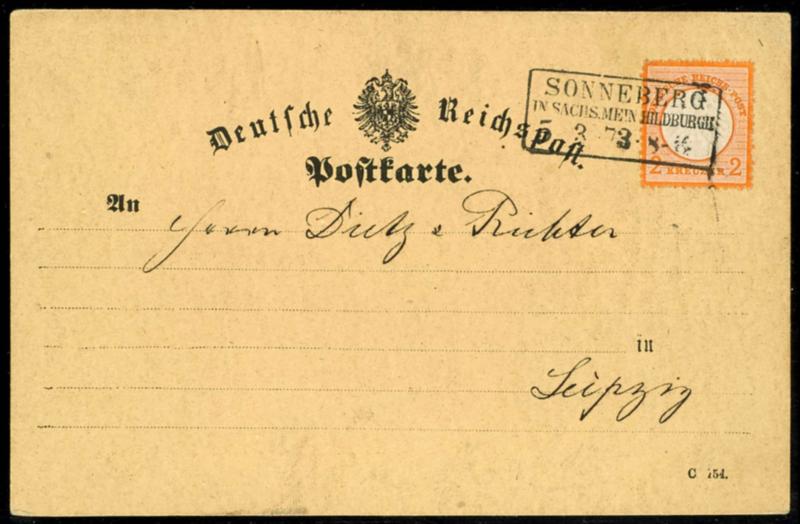 Deutsche Reichspost.
Postkarte.
SONNEBERG
IN SACHS.MEIN.HILDBURGH
5 3 73. 8-
REICHS-POST
2 KREUZER. 2
An
Herrn Dietz & Richter
in
Leipzig
C 154.